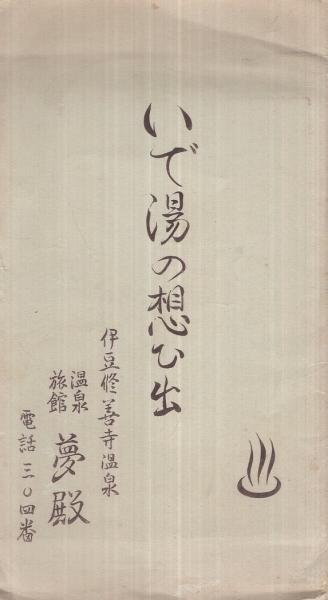 いで湯の想ひ出
伊豆修善寺温泉
温泉旅館 夢殿
電話 三〇四番